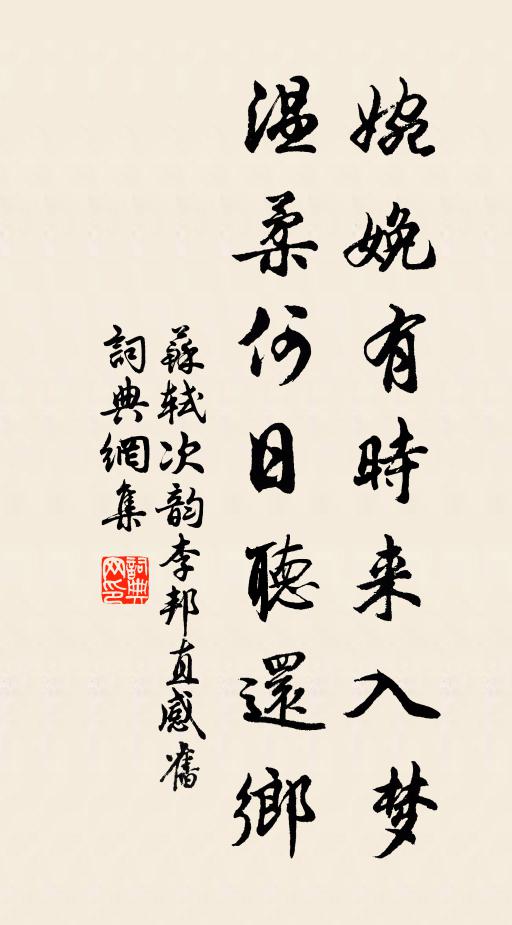 婉娩有時来入梦
温柔何日聽還鄉
蘇轼次韵李邦直感舊
詞典網集
詞典网印